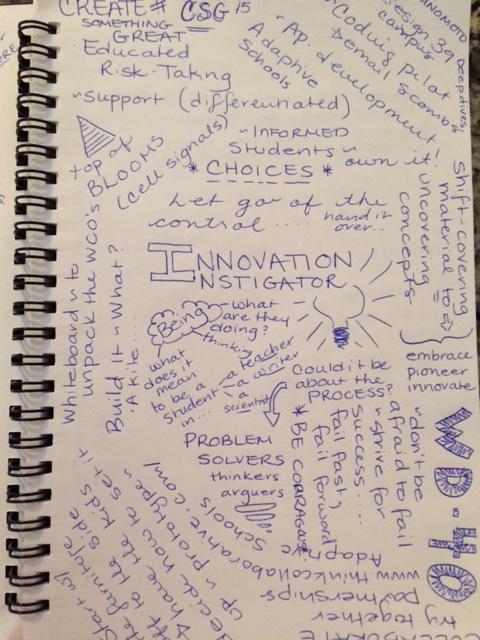 CREATE # CSG 15
SOMETHING
GREAT
Educated
Risk-Taking
~Support (differentiated)
~Ap. development!
Adaptive
Schools
Design 39
campus
Coding pilot
→ email Scomb
Deepdives,
top of
BLOOMS
(cell signals)
~INFORMED
Students ~
* CHOICES *
own it!
Let go of the
control .... hand it
over...
shift-covering
material to ⇨
uncovering =
concepts
embrace
pioneer
innovate
INNOVATION
INSTIGATOR
Whiteboard ~ to
unpack the WCO's
Build it ~ What?
.A kite...
Being
~what
are they
doing?
thinking
what
does it
mean
to be a
Student
in...
a teacher
a writer
a scientist
Could it be
about the
PROCESS?
PROBLEM
SOLVERS
thinkers
arguers
* BE COURAGE
fail fast,
fail forward
success....
~strive for
afraid to fail
~don't be
WD-40
Adaptive
Schools
www.thinkcollaborative.com/
partnerships
try together
decide how to set it
up ~ prototype ~
have the kids
Start w/
the furniture
to the side